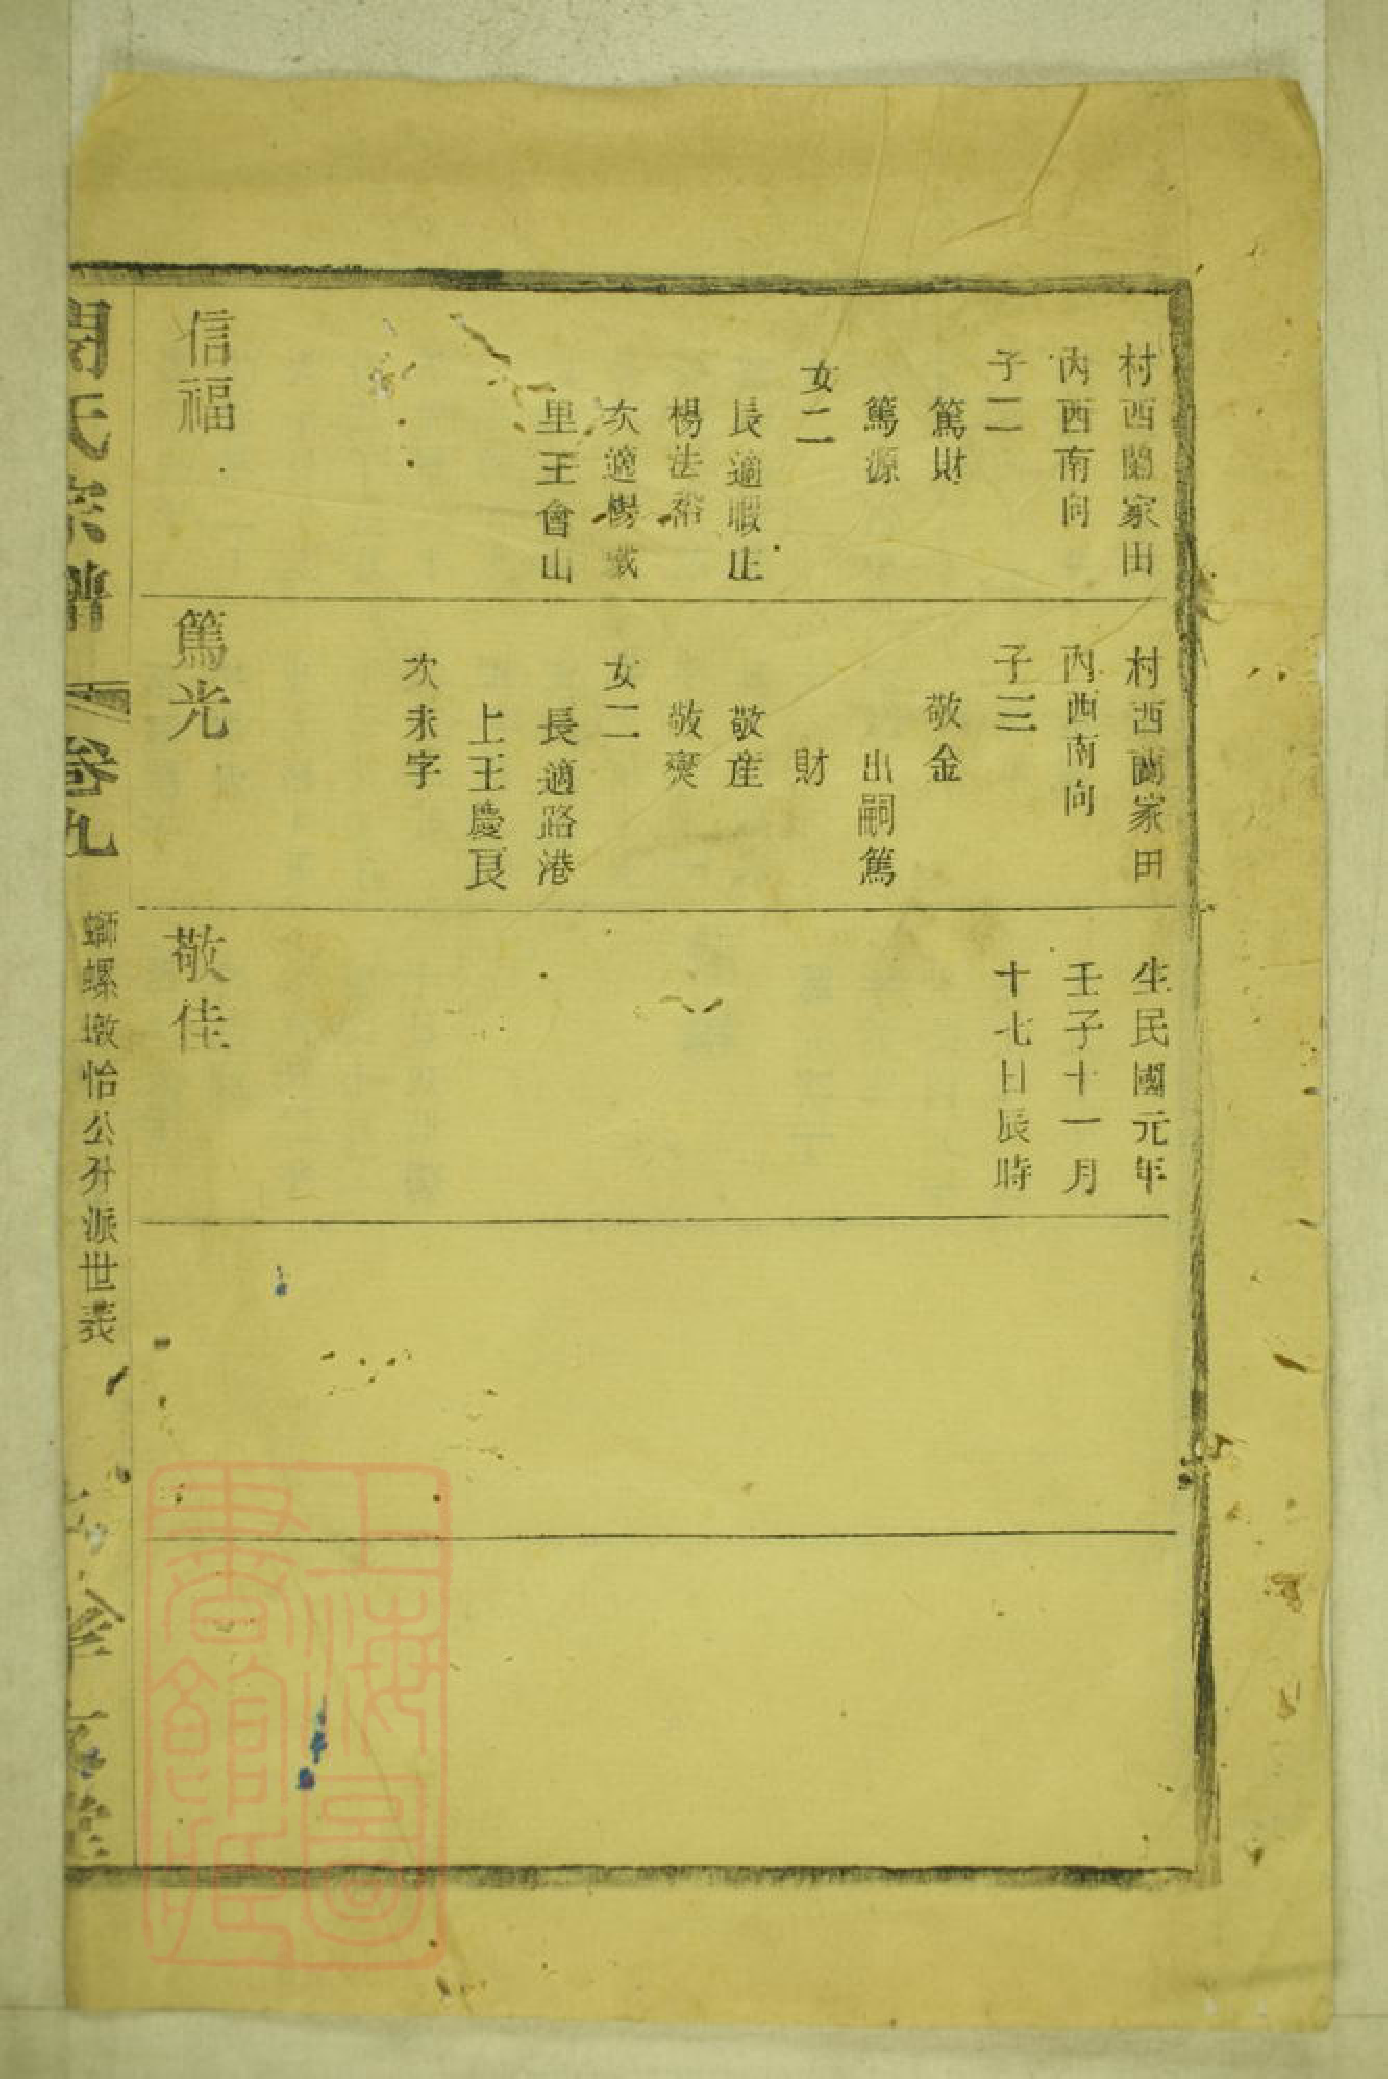 村西蘭家田
內西南向
子二
篤財
篤源
女二
長適暇止
楊法裕
次適楊
里王會山
信福
村西蘭家田
內西南向
子三
敬金
出嗣篤
財
敬産
敬爕
女二
長適路港
上王慶良
次未字
篤光
生民國元年
壬子十一月
十七日辰時
敬佳
氏宗譜
卷九
螄螺墩怡公分派世表
上海圖
書館藏